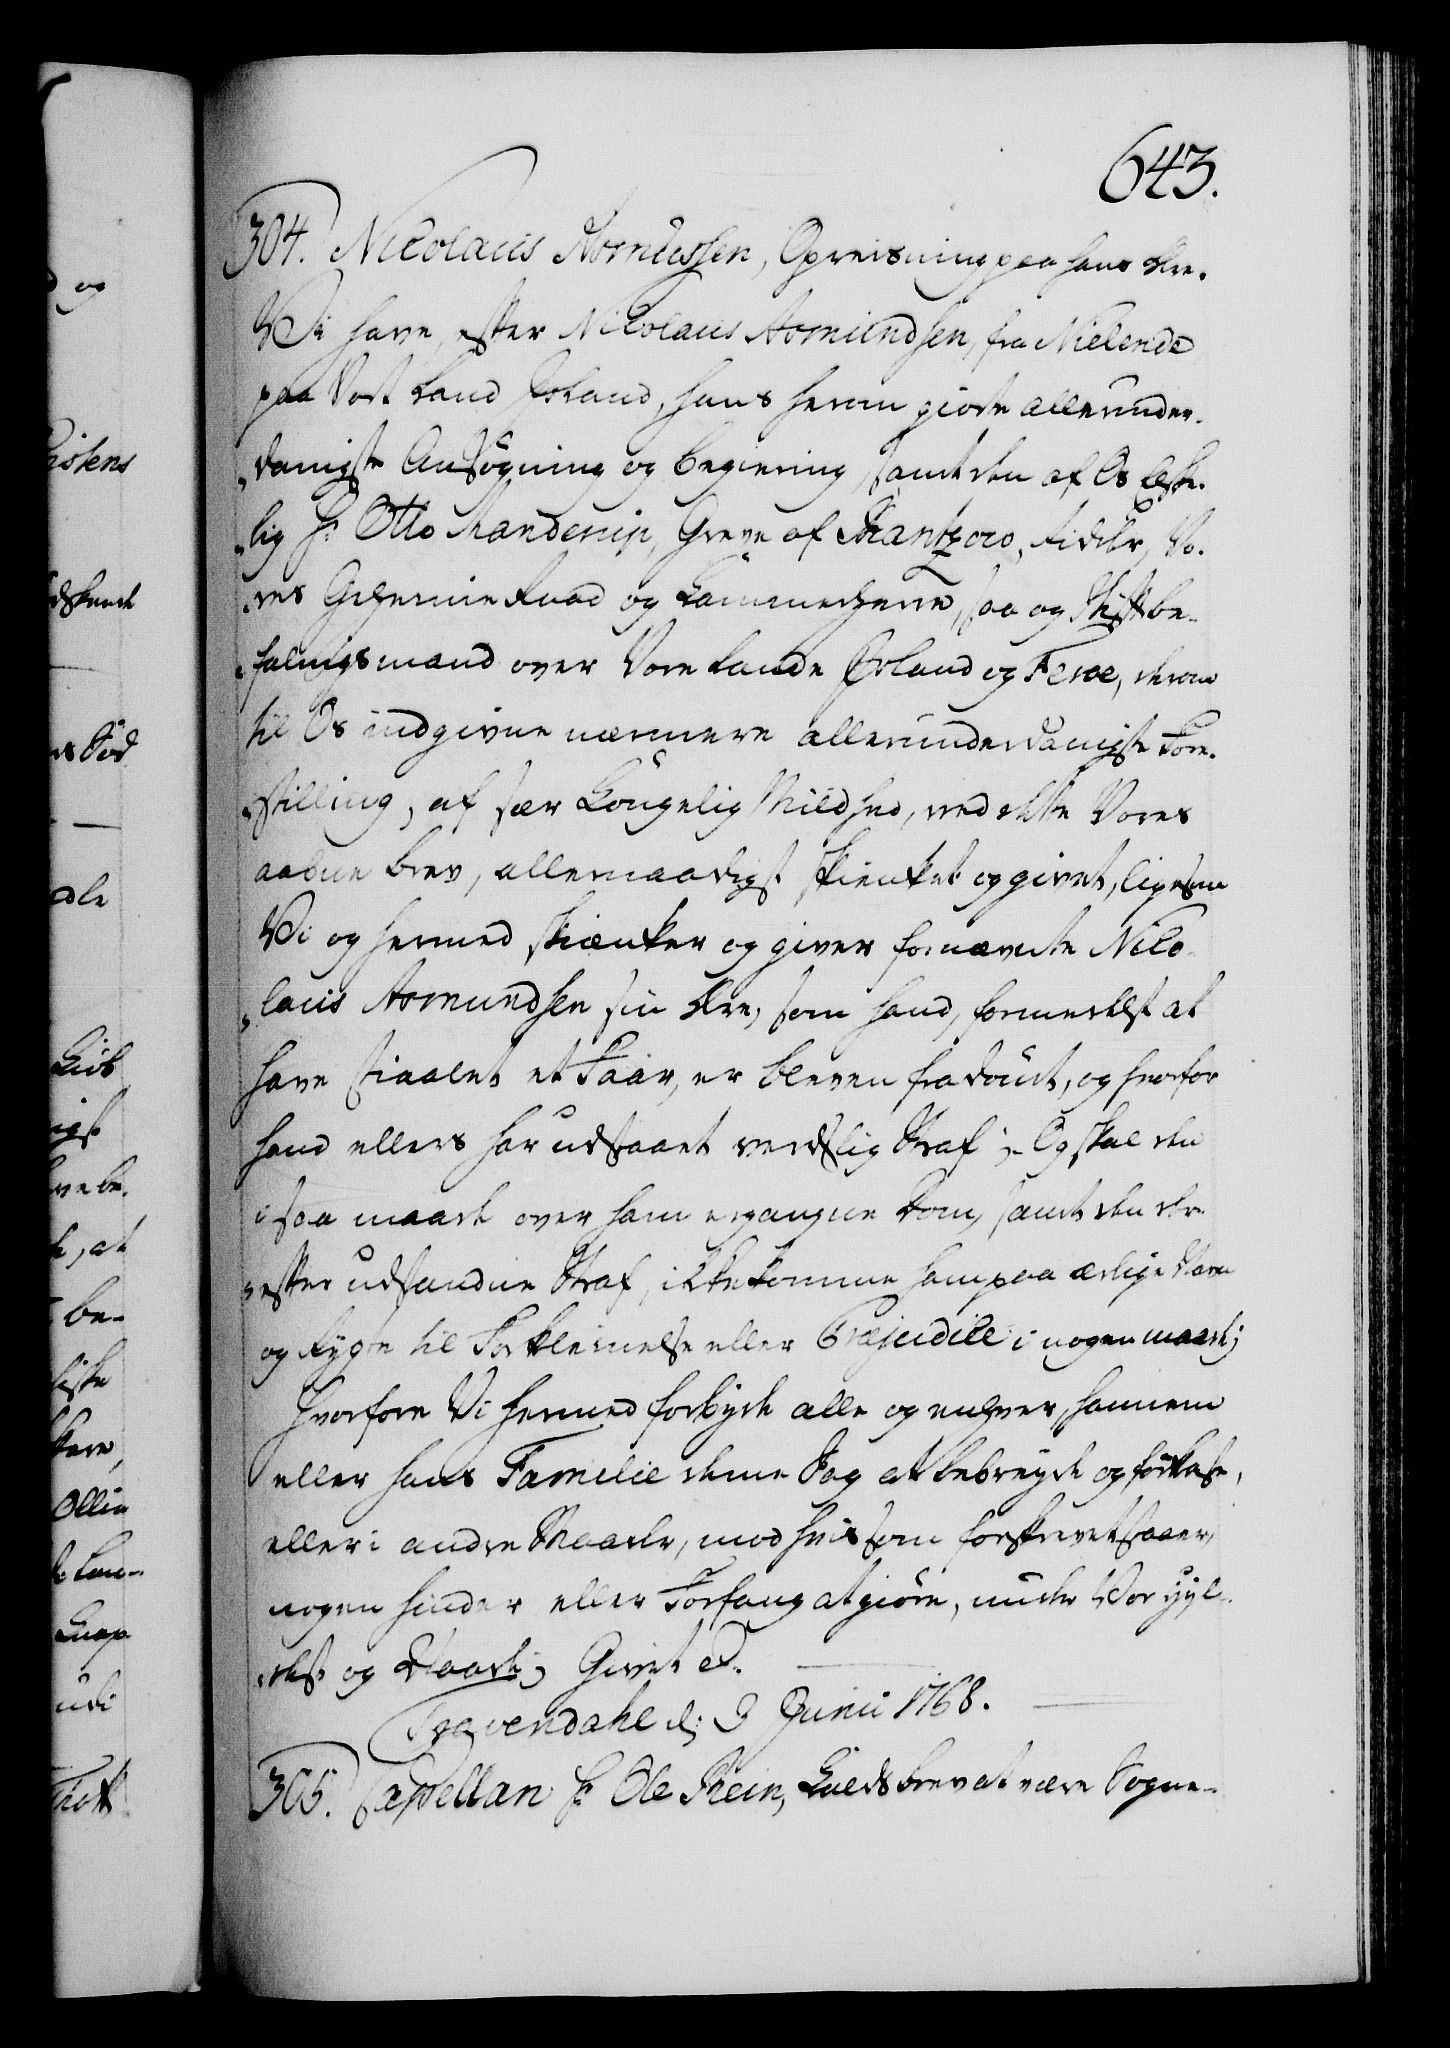 643.
304. Nicolaus Asmussen, Opreisning paa hans Ære.
Vi have, efter Nicolaus Asmundsen, fra Nielende
paa Vort Land Island, hans herom giorte allerunder-
danigste Ansögning og begiering, samt den af Os Elske-
lig Hr Otto Manderup, Greve af Rantzow, Ridder, Vo-
res Geheime Raad og Cammerherre, saa og Stiftbe-
falingsmand over Vore Lande Island og Feroe, derom
til Os indgivne nærmere allerunderdanigste Fore-
stilling, af sær Kongelig Mildhed, ved dette Vores
aabne brev, allernaadigst skienket og givet, ligesom
Vi og hermed skienker og giver fornævnte Nico-
laus Asmundsen sin Ære, som hand, formedelst at
have stiaalet et Faar, er bleven fradömt, og hvorfor
hand ellers har udstaaet verdslig Straf; Og skal den
i saa maade over ham ergangne Dom, samt den der-
efter udstandne Straf, ikke komme ham paa ærlige Navn
og Rygte til Forkleinelse eller Præjudice i nogen maade;
Hvorfore Vi hermed forbyde alle og enhver, hannem
eller hans Familie denne Sag at bebreyde og forkaste,
eller i andre Maader, mod hvis som forskrevet staaer,
nogen hinder eller Forfang at giöre, under Vor Hyl-
dest og Naade; Givet etc.
Travendahl d: 3 Junii 1768.
305. Capellan Hr Ole Stein, Kaldsbrev at være Sogne-
og